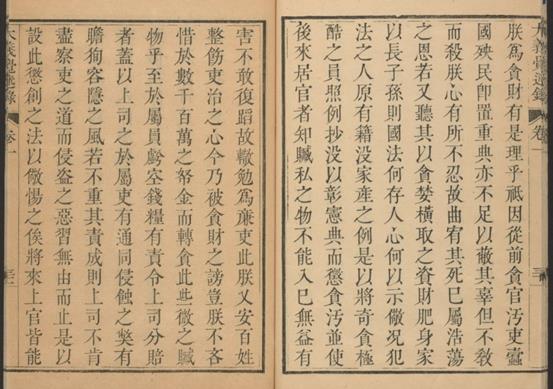 大義覺迷錄 卷一
朕爲貪財有是理乎祇因從前貪官污吏蠹
國殃民卽置重典亦不足以蔽其辜但不教
而殺朕心有所不忍故曲宥其死巳屬浩蕩
之恩若又聽其以貪婪橫取之資財肥身家
以長子孫則國法何存人心何以示儆況犯
法之人原有籍没家產之例是以將奇貪極
酷之員照例抄没以彰憲典而懲貪汚並使
後來居官者知贓私之物不能入巳無益有
害不敢復蹈故轍勉爲亷吏此朕又安百姓
整飭吏治之心今乃被貪財之謗豈朕不吝
惜於數千百萬之帑金而轉貪此些微之贓
物乎至於屬員虧空錢糧有責令上司分賠
者蓋以上司之於屬吏有通同侵蝕之獘有
瞻狥容隱之風若不重其責成則上司不肯
盡察吏之道而侵盜之惡習無由而止是以
設此懲創之法以儆惕之俟將來上官皆能
大義覺迷錄 卷一